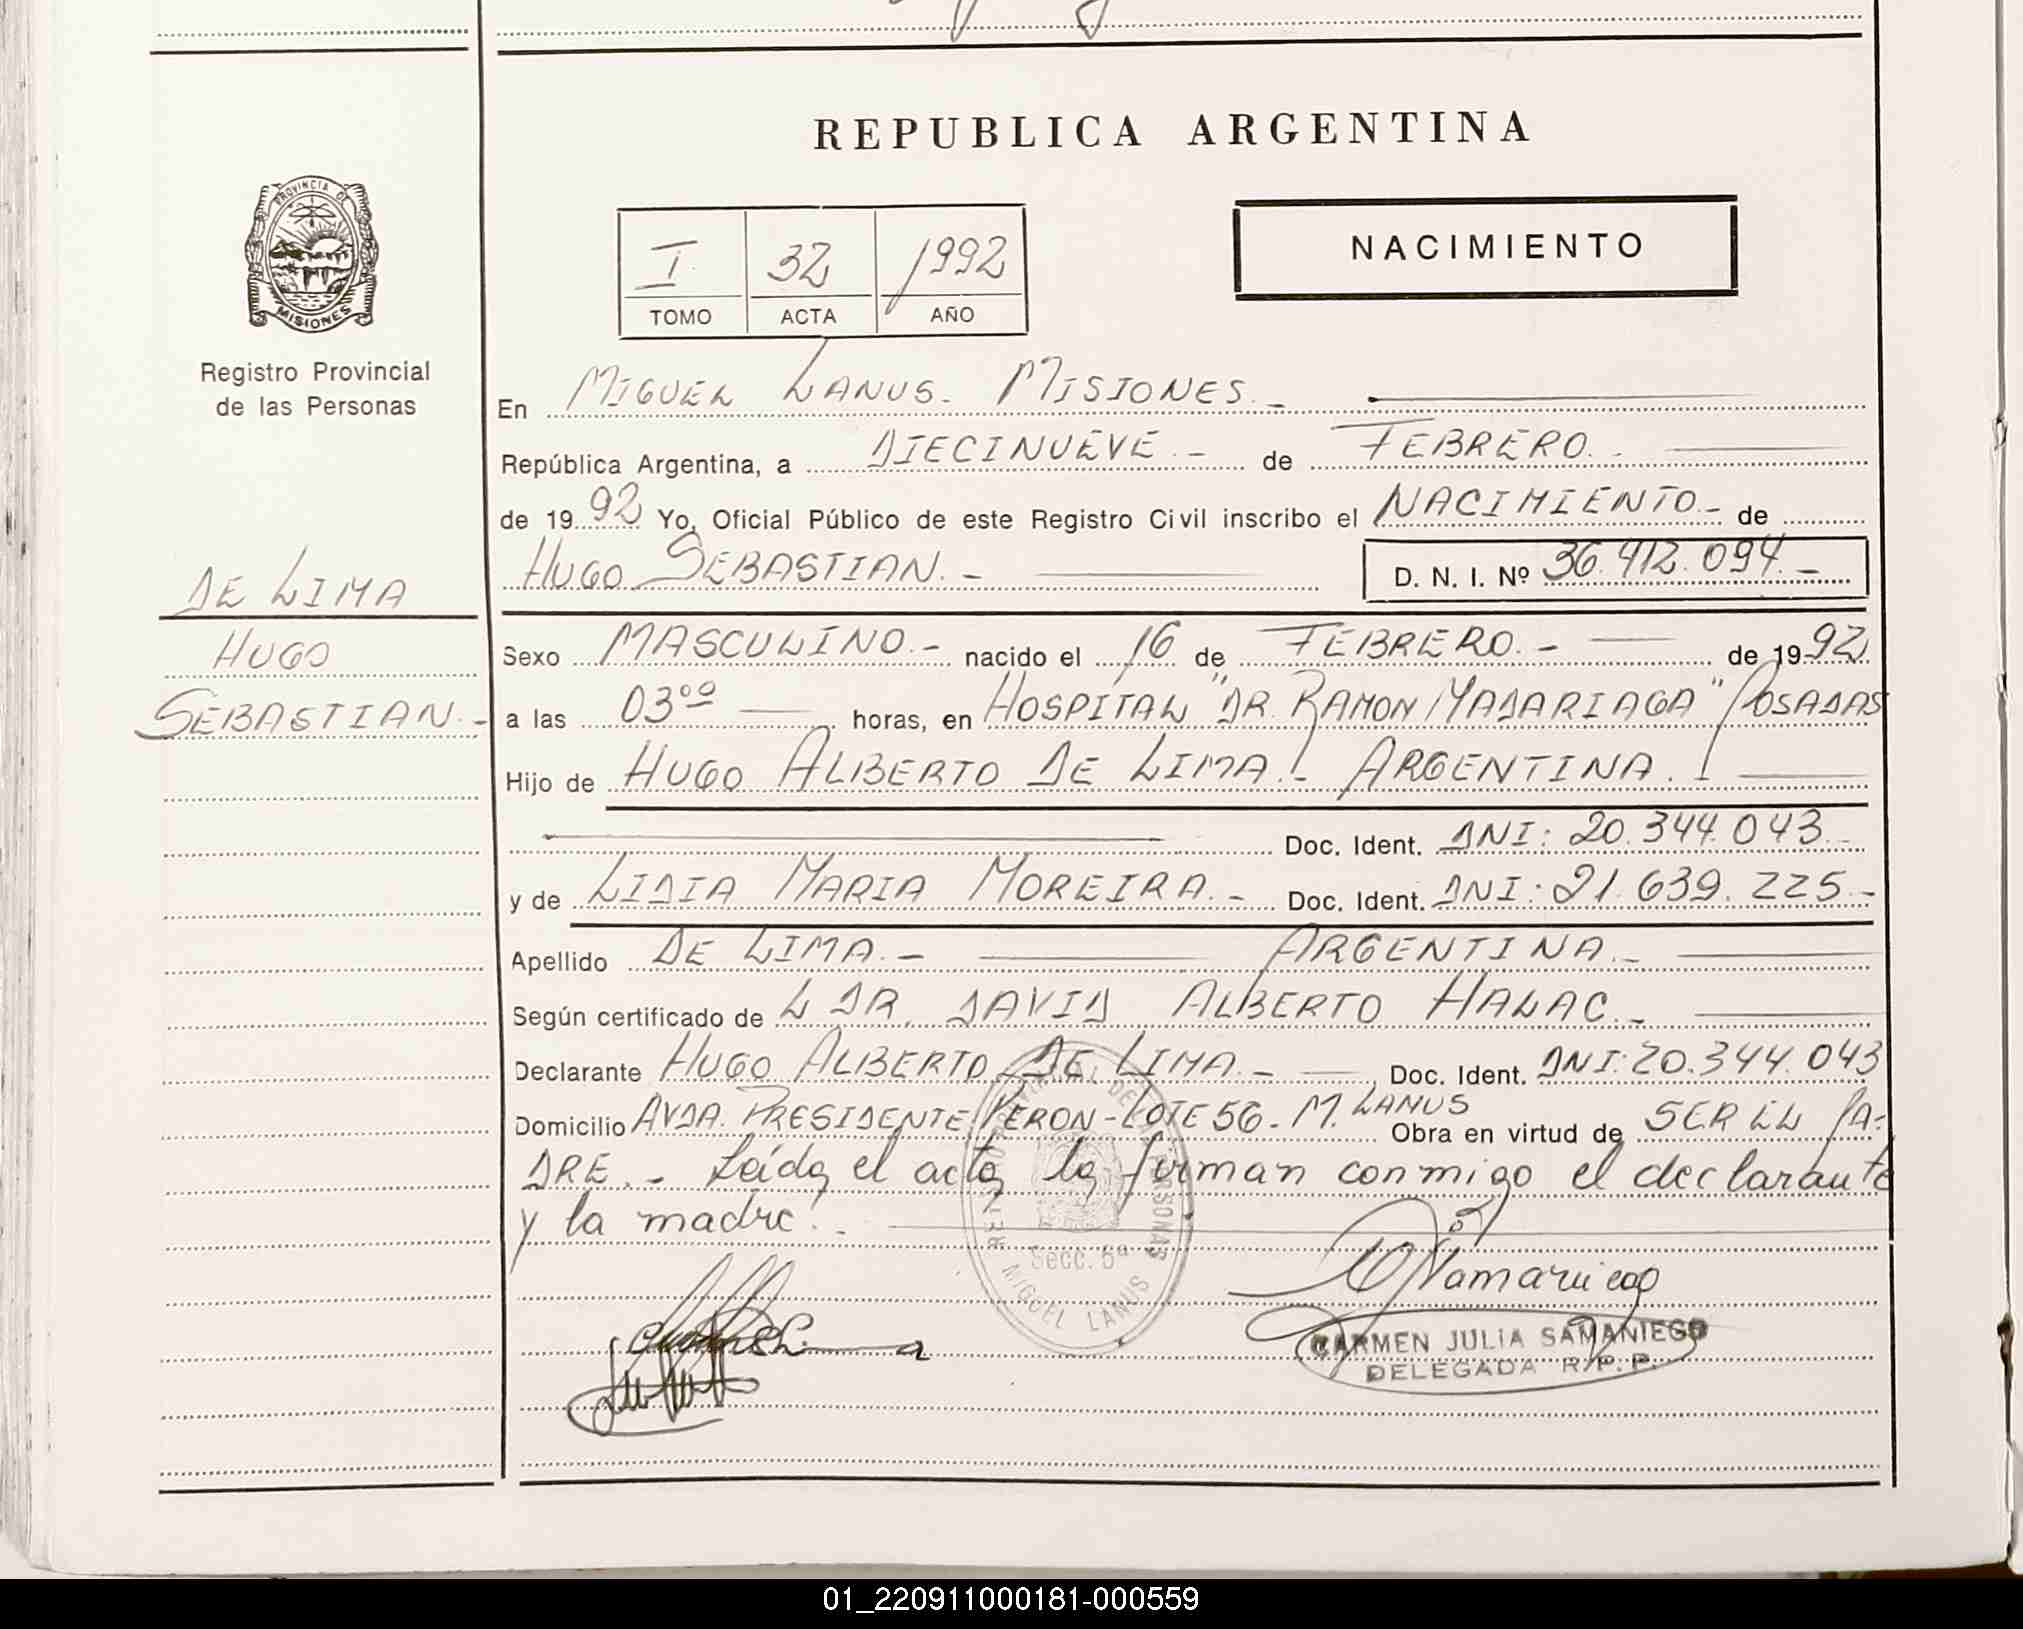 REPUBLICA ARGENTINA
PROVINCIA DE
MISIONES
Registro Provincial
de las Personas
I 32 1992
TOMO ACTA AÑO
NACIMIENTO
En MIGUEL LANUS. MISIONES.-
República Argentina, a DIECINUEVE.- de FEBRERO.-
de 1992 Yo, Oficial Público de este Registro Civil inscribo el NACIMIENTO- de
HUGO SEBASTIAN.- D. N. I. Nº 36.912.094.-
DE LIMA
HUGO
SEBASTIAN.-
Sexo MASCULINO.- nacido el 16 de FEBRERO.- de 1992
a las 03ºº horas, en HOSPITAL "DR. RAMON MADARIAGA" POSADAS
Hijo de HUGO ALBERTO DE LIMA.- ARGENTINA.
Doc. Ident. DNI: 20.344.043.-
y de LIDIA MARIA MOREIRA.- Doc. Ident. DNI: 21.639.225.-
Apellido DE LIMA.- ARGENTINA.-
Según certificado de L DR. DAVID ALBERTO HALAC.-
Declarante HUGO ALBERTO DE LIMA.- Doc. Ident. DNI: 20.344.043
Domicilio AVDA. PRESIDENTE PERON-LOTE 56-M. LANUS Obra en virtud de SER EL PA-
DRE.- Leída el acta la firman conmigo el declarante
y la madre.-
Secc. 5ª
MIGUEL LANUS
CARMEN JULIA SAMANIEGO
DELEGADA R.P.P.
01_220911000181-000559